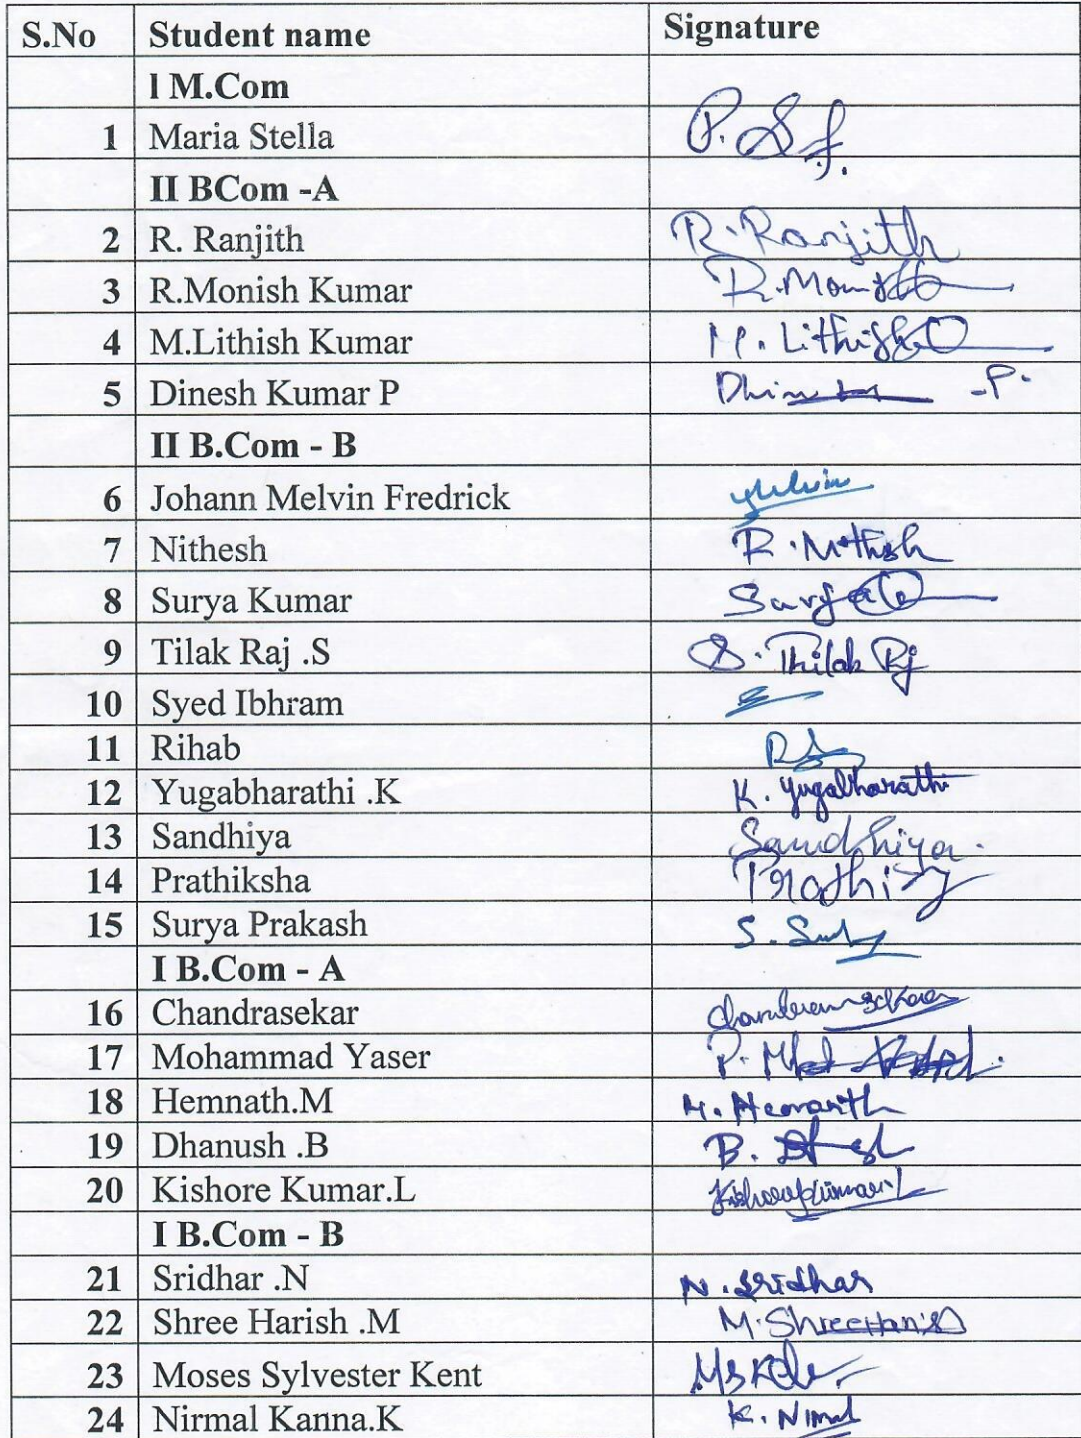 S.No Student name Signature
I M.Com
1 Maria Stella P.
II BCom -A
2 R. Ranjith R. Ranjith
3 R.Monish Kumar R.
4 M.Lithish Kumar M. Lithish
5 Dinesh Kumar P P.
II B.Com - B
6 Johann Melvin Fredrick
7 Nithesh R. Nithesh
8 Surya Kumar Surya
9 Tilak Raj .S S. Thilak Rj
10 Syed Ibhram
11 Rihab
12 Yugabharathi .K K. Yugabharathi
13 Sandhiya Sandhiya.
14 Prathiksha Prathi
15 Surya Prakash S.
I B.Com - A
16 Chandrasekar
17 Mohammad Yaser P.
18 Hemnath.M M. Hemanth
19 Dhanush .B B.
20 Kishore Kumar.L Kishorekumar.L
I B.Com - B
21 Sridhar .N N. Sridhar
22 Shree Harish .M M. Shreeharish
23 Moses Sylvester Kent
24 Nirmal Kanna.K K. Nirmal